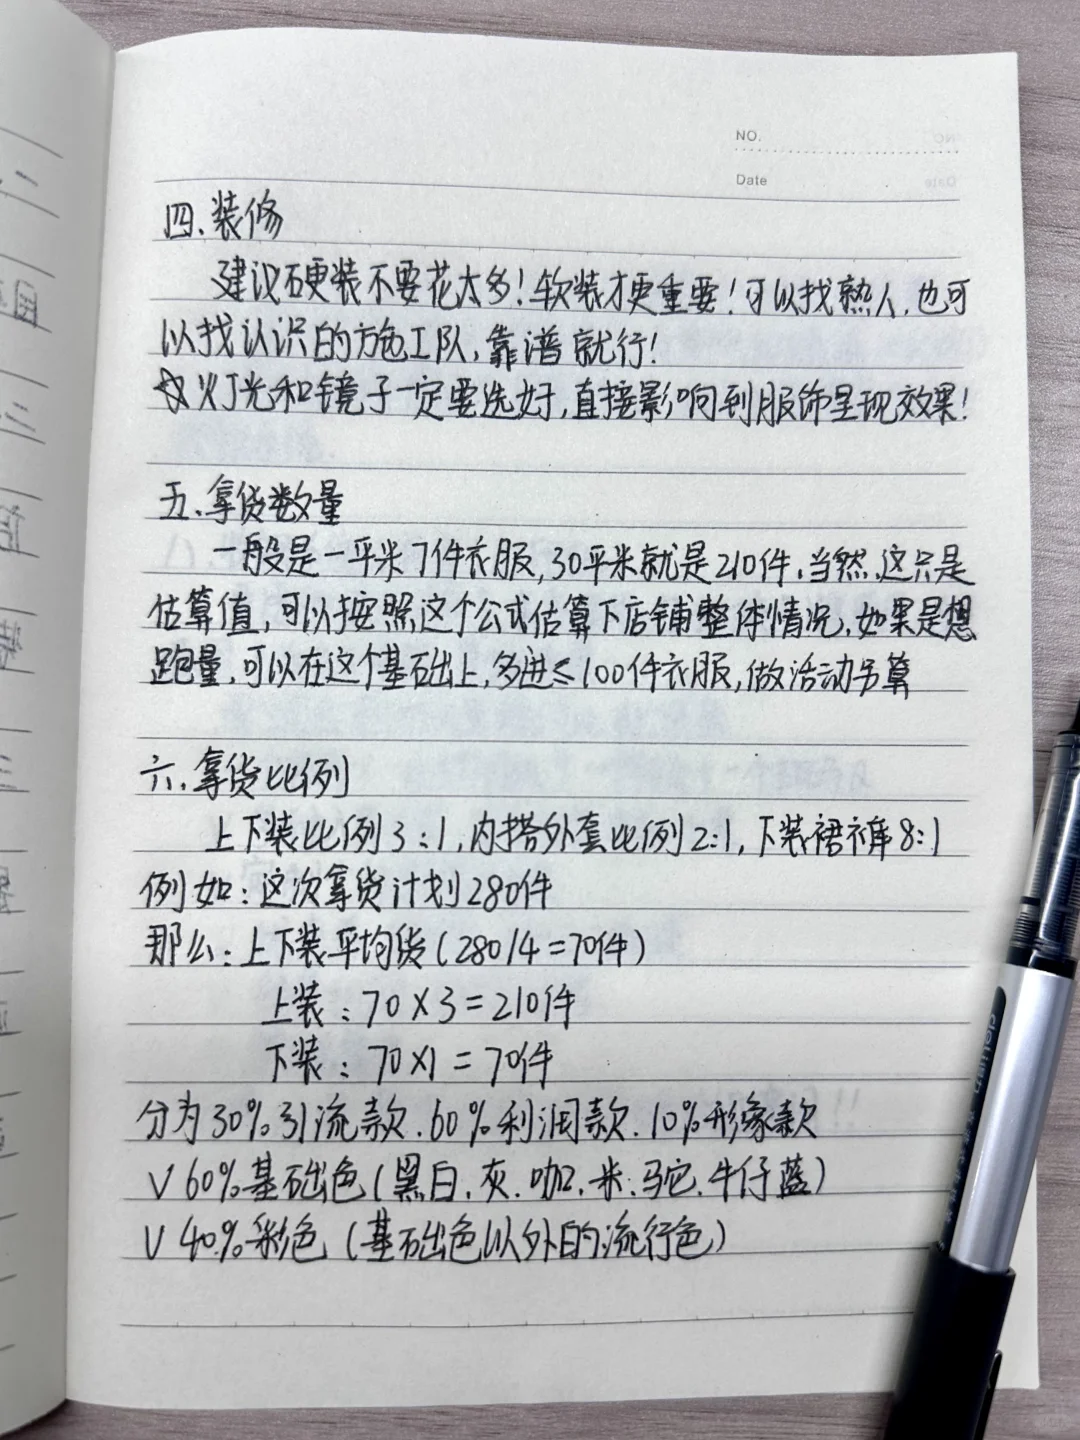 NO.
Date
四.装修
建议硬装不要花太多！软装才更重要！可以找熟人，也可
以找认识的方包工队，靠谱就行！
☆灯光和镜子一定要选好，直接影响到服饰呈现效果！
五.拿货数量
一般是一平米7件衣服，30平米就是210件，当然，这只是
估算值，可以按照这个公式估算下店铺整体情况，如果是想
跑量，可以在这个基础上，多进≤100件衣服，做活动另算
六.拿货比例
上下装比例3:1，内搭外套比例2:1，下装裙裤8:1
例如：这次拿货计划280件
那么：上下装平均货(280/4=70件)
上装：70×3=210件
下装：70×1=70件
分为30%引流款.60%利润款.10%形象款
V 60%基础色(黑白.灰.咖.米.驼.牛仔蓝)
V 40%彩色(基础色以外的流行色)